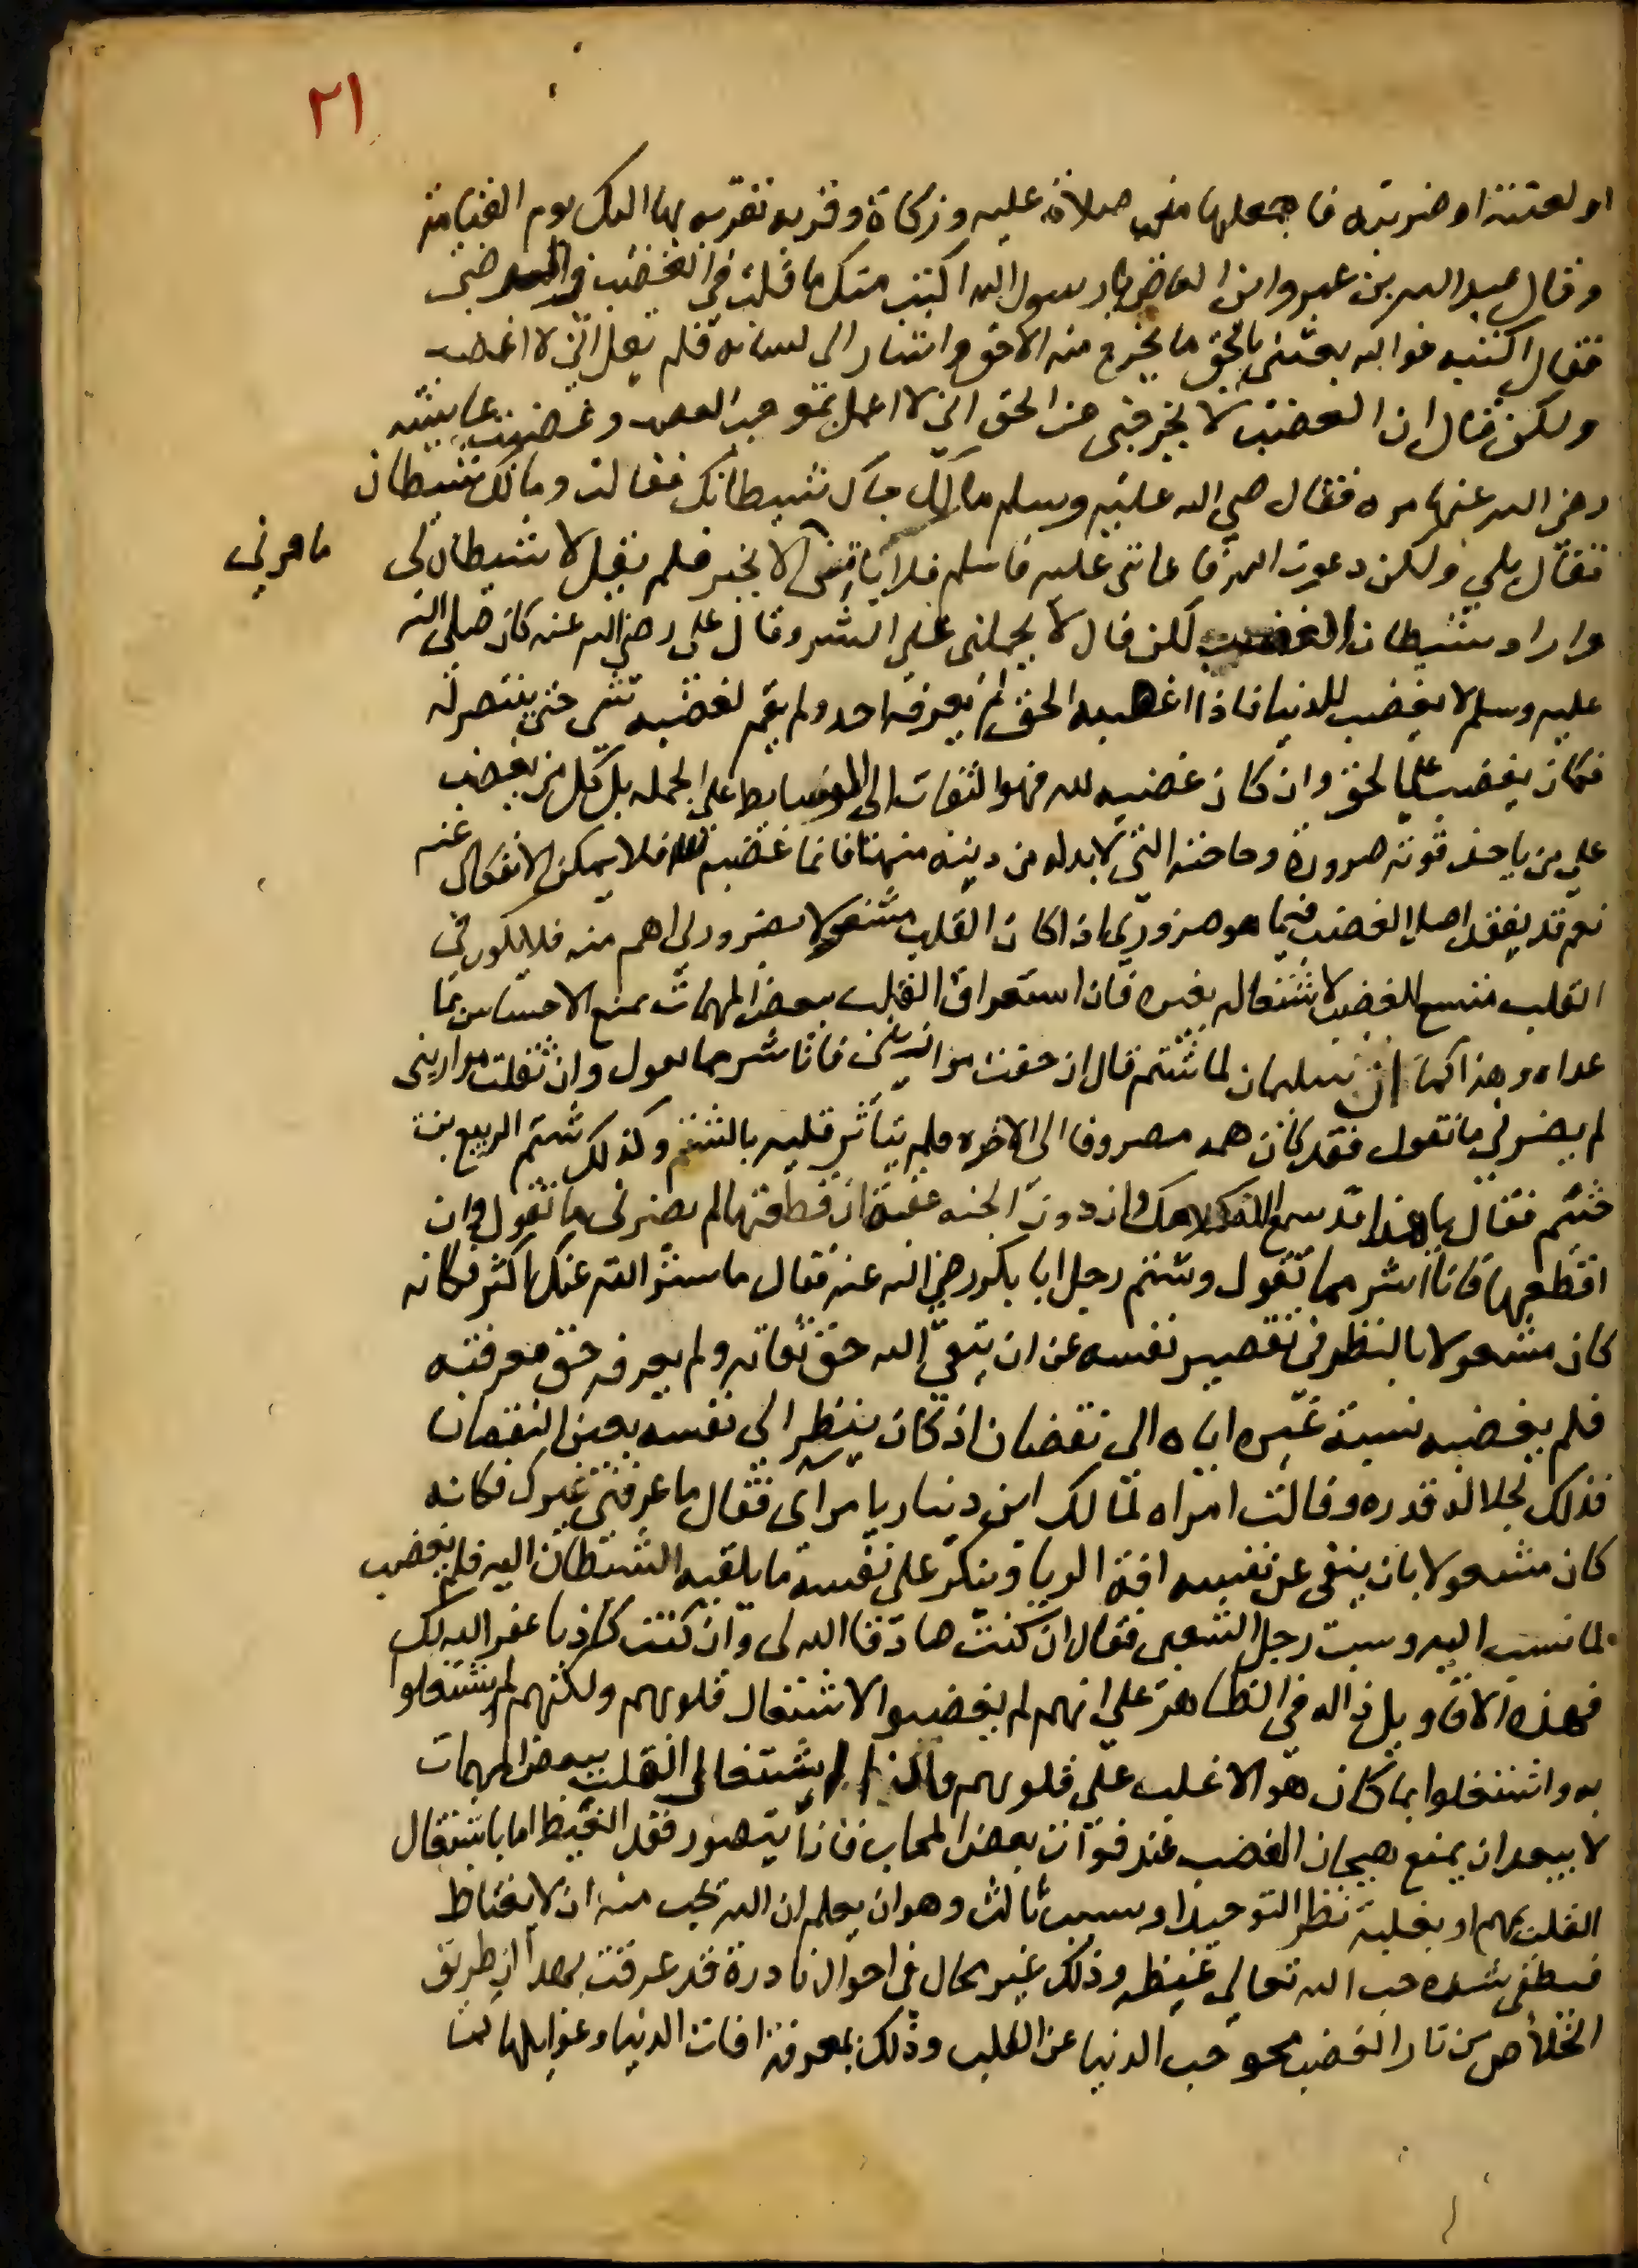 ٢١
او لعنته او ضربته فاجعلها مني صلاة عليه وزكاة وقربه تقربه بها اليك يوم القيامة
وقال عبد الله بن عمرو ابن العاص يا رسول الله اكتب منك ما قلت في الغضب والرضى
فقال اكتب فوالله بعثني بالحق ما يخرج منه الا حق واشار الى لسانه فلم يقل اني لا اغضب
ولكن قال ان الغضب لا يخرجني عن الحق اي لا اعمل بموجب الغضب وغضبت عايشه
رضي الله عنها مره فقال صلي الله عليه وسلم مالك جاك شيطانك فقالت ومالك شيطان
فقال بلي ولكن دعوت الله فاعانني عليه فاسلم فلا يامرني الا بخير فلم يقل لا شيطان لي
مامرني
واراد شيطان الغضب لكن قال لا يحملني علي الشر وقال علي رضي الله عنه كان صلى الله
عليه وسلم لا يغضب للدنيا فاذا اغضبه الحق لم يعرفه احد ولم يقم لغضبه شي حتى ينتصر له
فكان يغضب علي الحق وان كان غضبه لله فهو التفات الى الوسايط على الجمله بل كل من يغضب
علي من ياخذ قوته ضرورة وحاجته التي لا بد له من دينه منها فانما غضبه لله فلا يمكن الانفكاك عنه
نعم قد يفقد اصل الغضب فيما هو ضروري اذا كان القلب مشغولا بضروري اهم منه فلا يكون في
القلب متسع للغضب لاشتغاله بغيره فان استغراق القلب ببعض المهمات يمنع الاحساس بما
عداه وهذا كما ان سلمان لما شتم قال ان خفت موازيني فانا شر مما تقول وان ثقلت موازيني
لم يضرني ما تقول فقد كان همه مصروفا الى الاخره فلم يتاثر قلبه بالشتم وكذلك شتم الربيع بن
خثيم فقال يا هذا قد سمع الله كلامك وان دون الجنه عقبة ان قطعتها لم يضرني ما تقول وان
اقطعها فانا اشر مما تقول وشتم رجل ابا بكر رضي الله عنه فقال ما ستر الله عنك اكثر فكانه
كان مشغولا بالنظر في تقصير نفسه عن ان يتقي الله حق تقاته ولم يعرفه حق معرفته
فلم يغضبه نسبة غيره اياه الى نقصان اذ كان ينظر الى نفسه بعين النقصان
فذلك لجلالة قدره وقالت امراه لمالك ابن دينار يا مراى فقال ما عرفني غيرك فكانه
كان مشغولا بان ينفى عن نفسه افة الريا وينكر على نفسه ما يلقيه الشيطان اليه فلم يغضب
لما نسب اليه وسبت رجل الشعبي فقال ان كنت صادقا الله لى وان كنت كاذبا غفر الله لك
فهذه الاقاويل داله في الظاهر علي انهم لم يغضبوا لاشتغال قلوبهم ولكنهم لم يشتغلوا
به واشتغلوا بما كان هو الاغلب على قلوبهم فاذا اشتغال القلب ببعض المهمات
لا يبعد ان يمنع هيجان الغضب عند فوات بعض المحاب فاذا يتصور فقد الغيظ اما باشتغال
القلب بمهم او بغلبة نظر التوحيد او بسبب ثالث وهو ان يعلم ان الله يحب منه ان لا يغتاظ
فيطفي شده حب الله تعالى غيظه وذلك غير محال في احوال نادرة قد عرفت بهذا ان طريق
الخلاص من نار الغضب محو حب الدنيا عن القلب وذلك بمعرفة افات الدنيا وغوايلها كما